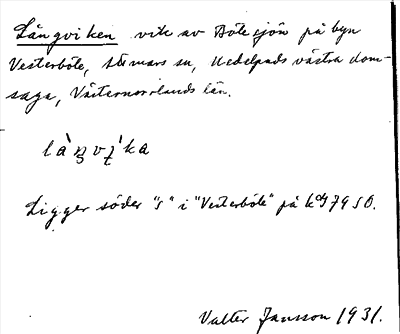 Långviken vik av Bölesjön på byn
Vesterböle, Stömars sn, Medelpads västra dom-
saga, Västernorrlands län.
Ligger söder "s" i "Vesterböle" på
Valter Jansson 1931.